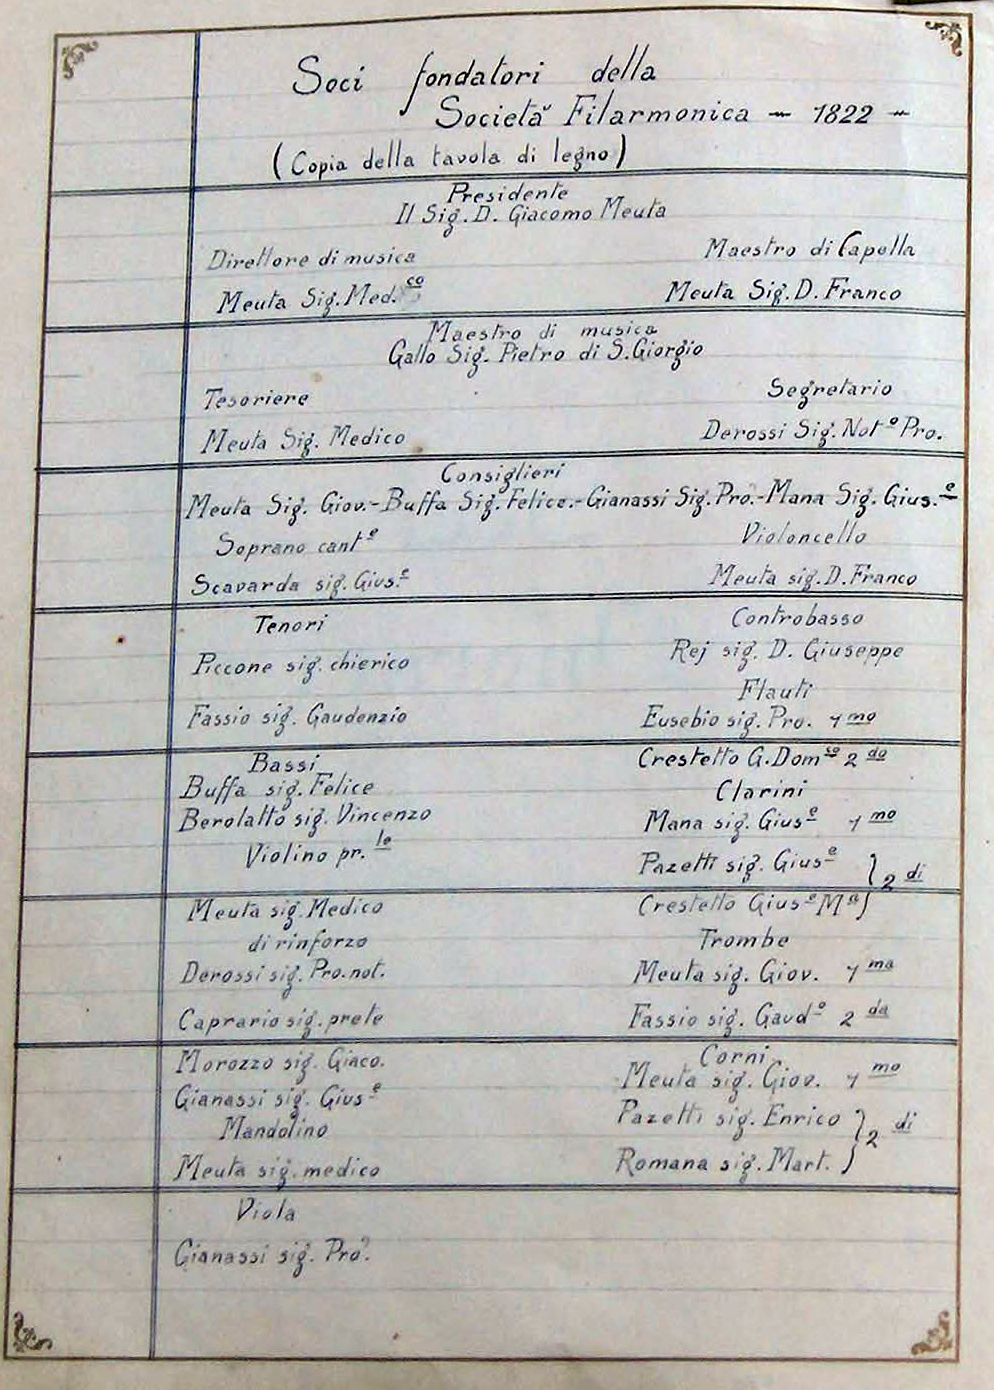 Soci fondatori della
Società Filarmonica - 1822 -
(Copia della tavola di legno)
Presidente
Il Sig. D. Giacomo Meuta
Direttore di musica
Maestro di Capella
Meuta Sig. Med.co
Meuta Sig. D. Franco
Maestro di musica
Gallo Sig. Pietro di S. Giorgio
Tesoriere
Segretario
Meuta Sig. Medico
Derossi Sig. Noto Pro.
Consiglieri
Meuta Sig. Giov.-Buffa Sig. Felice.-Gianassi Sig. Pro.-Mana Sig. Gius.e
Soprano cante
Violoncello
Scavarda sig. Gius.e
Meuta sig. D. Franco
Tenori
Controbasso
Piccone sig. chierico
Rej sig. D. Giuseppe
Flauti
Fassio sig. Gaudenzio
Eusebio sig. Pro. 1mo
Bassi
Crestetto G. Domco 2do
Buffa sig. Felice
Clarini
Berolatto sig. Vincenzo
Mana sig. Giuse 1mo
Violino pr.le
Pazetti sig. Giuse } 2di
Meuta sig. Medico
Crestetto Giuse Ma
di rinforzo
Trombe
Derossi sig. Pro. not.
Meuta sig. Giov. 1ma
Caprario sig. prete
Fassio sig. Gaudo 2da
Morozzo sig. Giaco.
Corni
Meuta sig. Giov. 1mo
Gianassi sig. Giuse
Pazetti sig. Enrico } 2di
Mandolino
Meuta sig. medico
Romana sig. Mart.
Viola
Gianassi sig. Pro.